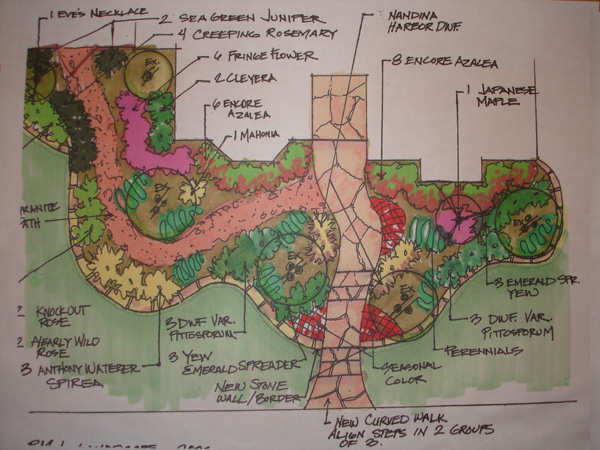 1 EVE'S NECKLACE
2 SEA GREEN JUNIPER
4 CREEPING ROSEMARY
6 FRINGE FLOWER
2 CLEYERA
6 ENCORE
AZALEA
1 MAHONIA
NANDINA
HARBOR DWF.
8 ENCORE AZALEA
1 JAPANESE
MAPLE
EX.
EX.
EX.
EX.
EX.
GRANITE
PATH
2 KNOCKOUT
ROSE
2 NEARLY WILD
ROSE
3 ANTHONY WATERER
SPIREA
3 DWF. VAR.
PITTOSPORUM
3 YEW
EMERALD SPREADER
NEW STONE
WALL/BORDER
3 EMERALD SPR.
YEW
3 DWF. VAR.
PITTOSPORUM
PERENNIALS
SEASONAL
COLOR
NEW CURVED WALK
ALIGN STEPS IN 2 GROUPS
OF 3.